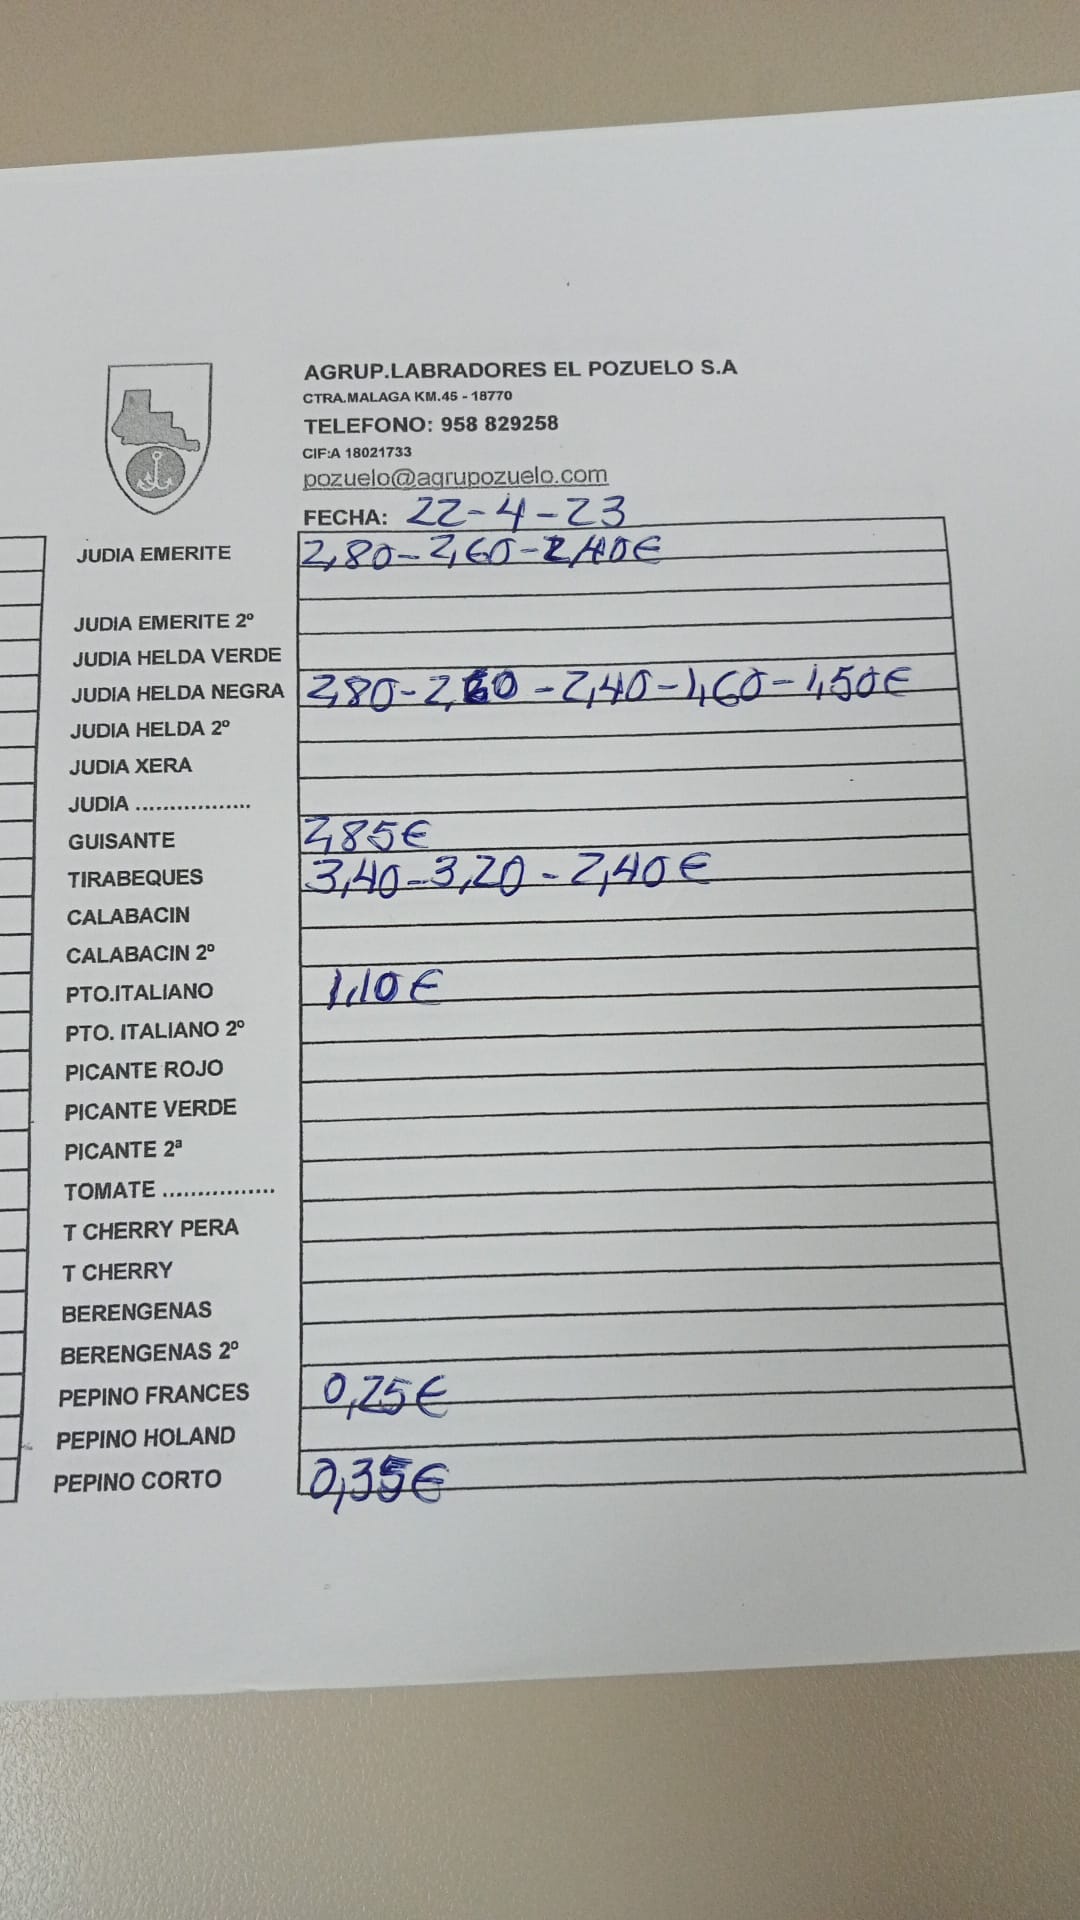 AGRUP.LABRADORES EL POZUELO S.A
CTRA.MALAGA KM.45 - 18770
TELEFONO: 958 829258
CIF:A 18021733
pozuelo@agrupozuelo.com
FECHA: 22-4-23
JUDIA EMERITE 2,80-2,60-2,40€
JUDIA EMERITE 2º
JUDIA HELDA VERDE
JUDIA HELDA NEGRA 2,80-2,60-2,40-1,60-1,50€
JUDIA HELDA 2º
JUDIA XERA
JUDIA .................
GUISANTE 2,85€
TIRABEQUES 3,40-3,20-2,40€
CALABACIN
CALABACIN 2º
PTO.ITALIANO 1,10€
PTO. ITALIANO 2º
PICANTE ROJO
PICANTE VERDE
PICANTE 2ª
TOMATE ................
T CHERRY PERA
T CHERRY
BERENGENAS
BERENGENAS 2º
PEPINO FRANCES 0,25€
PEPINO HOLAND
PEPINO CORTO 0,35€